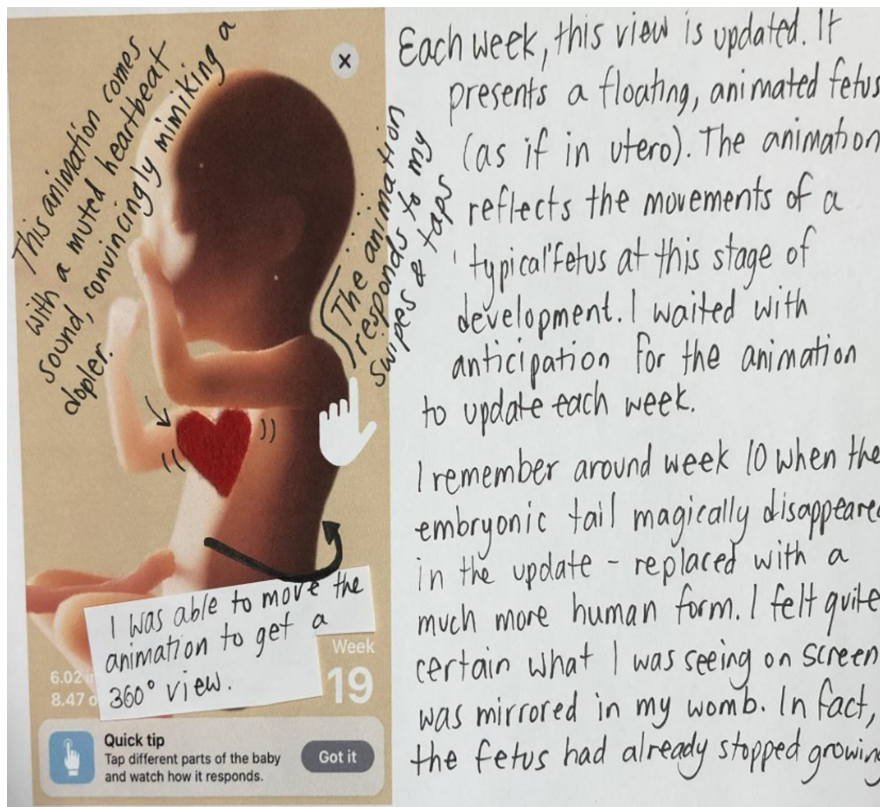 This animation comes
with a muted heartbeat
sound, convincingly mimiking a
dopler.
The animation
responds to my
swipes & taps
I was able to move the
animation to get a
360° view.
6.02
8.47
Week
19
Quick tip
Tap different parts of the baby
and watch how it responds.
Got it
Each week, this view is updated. It
presents a floating, animated fetus
(as if in utero). The animation
reflects the movements of a
'typical' fetus at this stage of
development. I waited with
anticipation for the animation
to update each week.
I remember around week 10 when the
embryonic tail magically disappeare
in the update - replaced with a
much more human form. I felt quite
certain what I was seeing on screen
was mirrored in my womb. In fact,
the fetus had already stopped growing